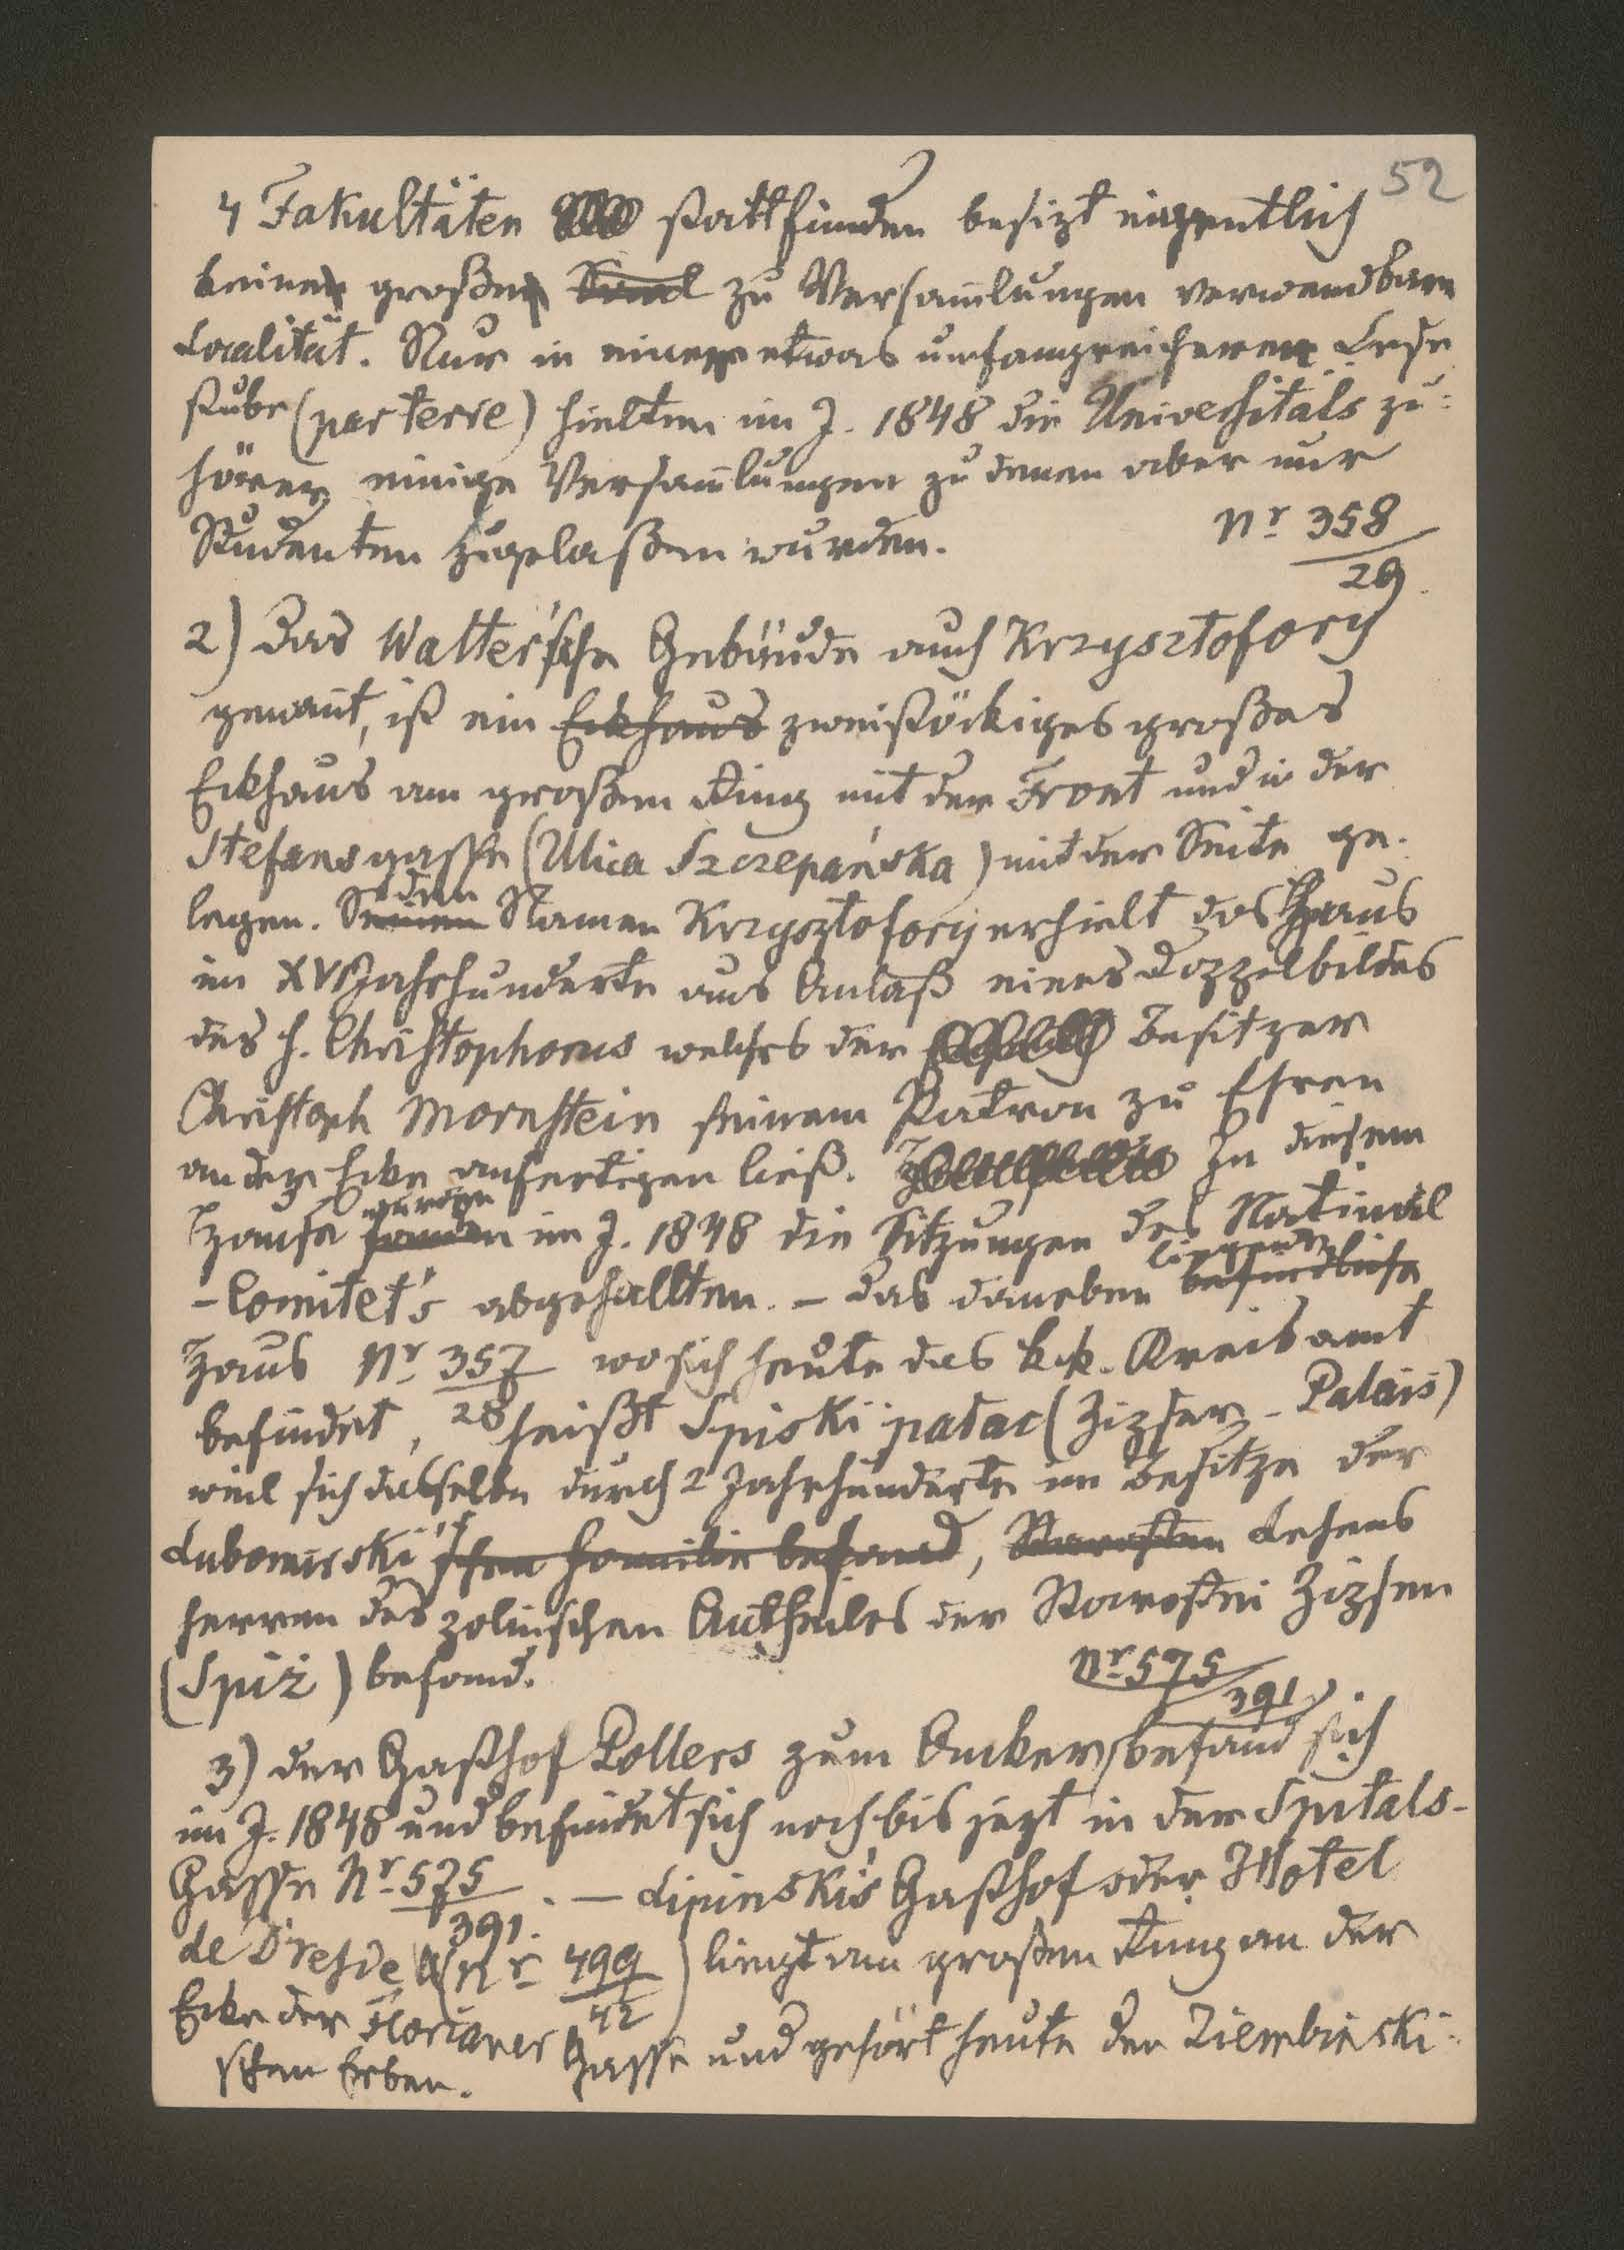 52
4 Fakultäten stattfinden besizt eigentlich
keine große zu Versam̄lungen verwendbare
Localität. Nur in einer etwas umfangreicheren Lese
stube (parterre) hielten im J. 1848 die Universitäts zu-
hörer einige Versam̄lungen zu denen aber nur
Studenten zugelaßen wurden.
Nr 358
29
2) Das Walter'sche Gebäude auch Krzysztofory
genan̄t, ist ein Eckhaus zweistöckiges großes
Eckhaus am großen Ring mit der Front und in der
Stefansgasse (Ulica Szczepańska) mit der Seite ge-
den
legen. Seinen Namen Krzysztofory erhielt das Haus
im XVI Jahrhunderte aus Anlaß eines Doppelbildes
des h. Christophorus welches der Besitzer
Christoph Mornstein seinem Patron zu Ehren
an der Ecke anfertigen ließ. In diesem
wurden
Hause fanden im J. 1848 die Sitzungen des National
liegende
-Comitet's abgehallten. – Das daneben befindliche
Haus Nr 357 wo sich heute das k.k. Kreisamt
28
befindet, heißt Spiski pałac (Zipser-Palais)
weil sich dasselbe durch 2 Jahrhunderte im Besitze der
Lubomirski'schen Familie befand, Starosten Lehens
herren des polnischen Antheiles der Starostei Zipsen
(Spiż) befand.
Nr 575
391
3) der Gasthof Pollers zum Anker befand sich
im J. 1848 und befindet sich noch bis jezt in der Spitals-
Gasse Nr 575 . – Lipinski's Gasthof oder Hotel
391.
de Dresde (Nr 499) liegt am großen Ring an der
42
Ecke der Florianer Gasse und gehört heute den Ziembinski-
schen Erben.